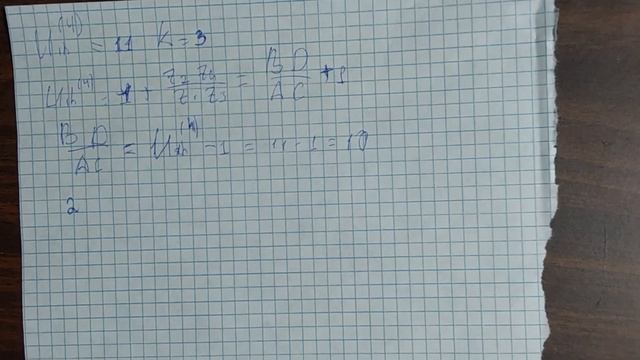 U₁h⁽⁴⁾ = 11 K = 3
U₁h⁽⁴⁾ = 1 + Z₂ Z₄ / Z₁ Z₃ = B D / A C + 1
B D / A C = U₁h⁽⁴⁾ - 1 = 11 - 1 = 10
2